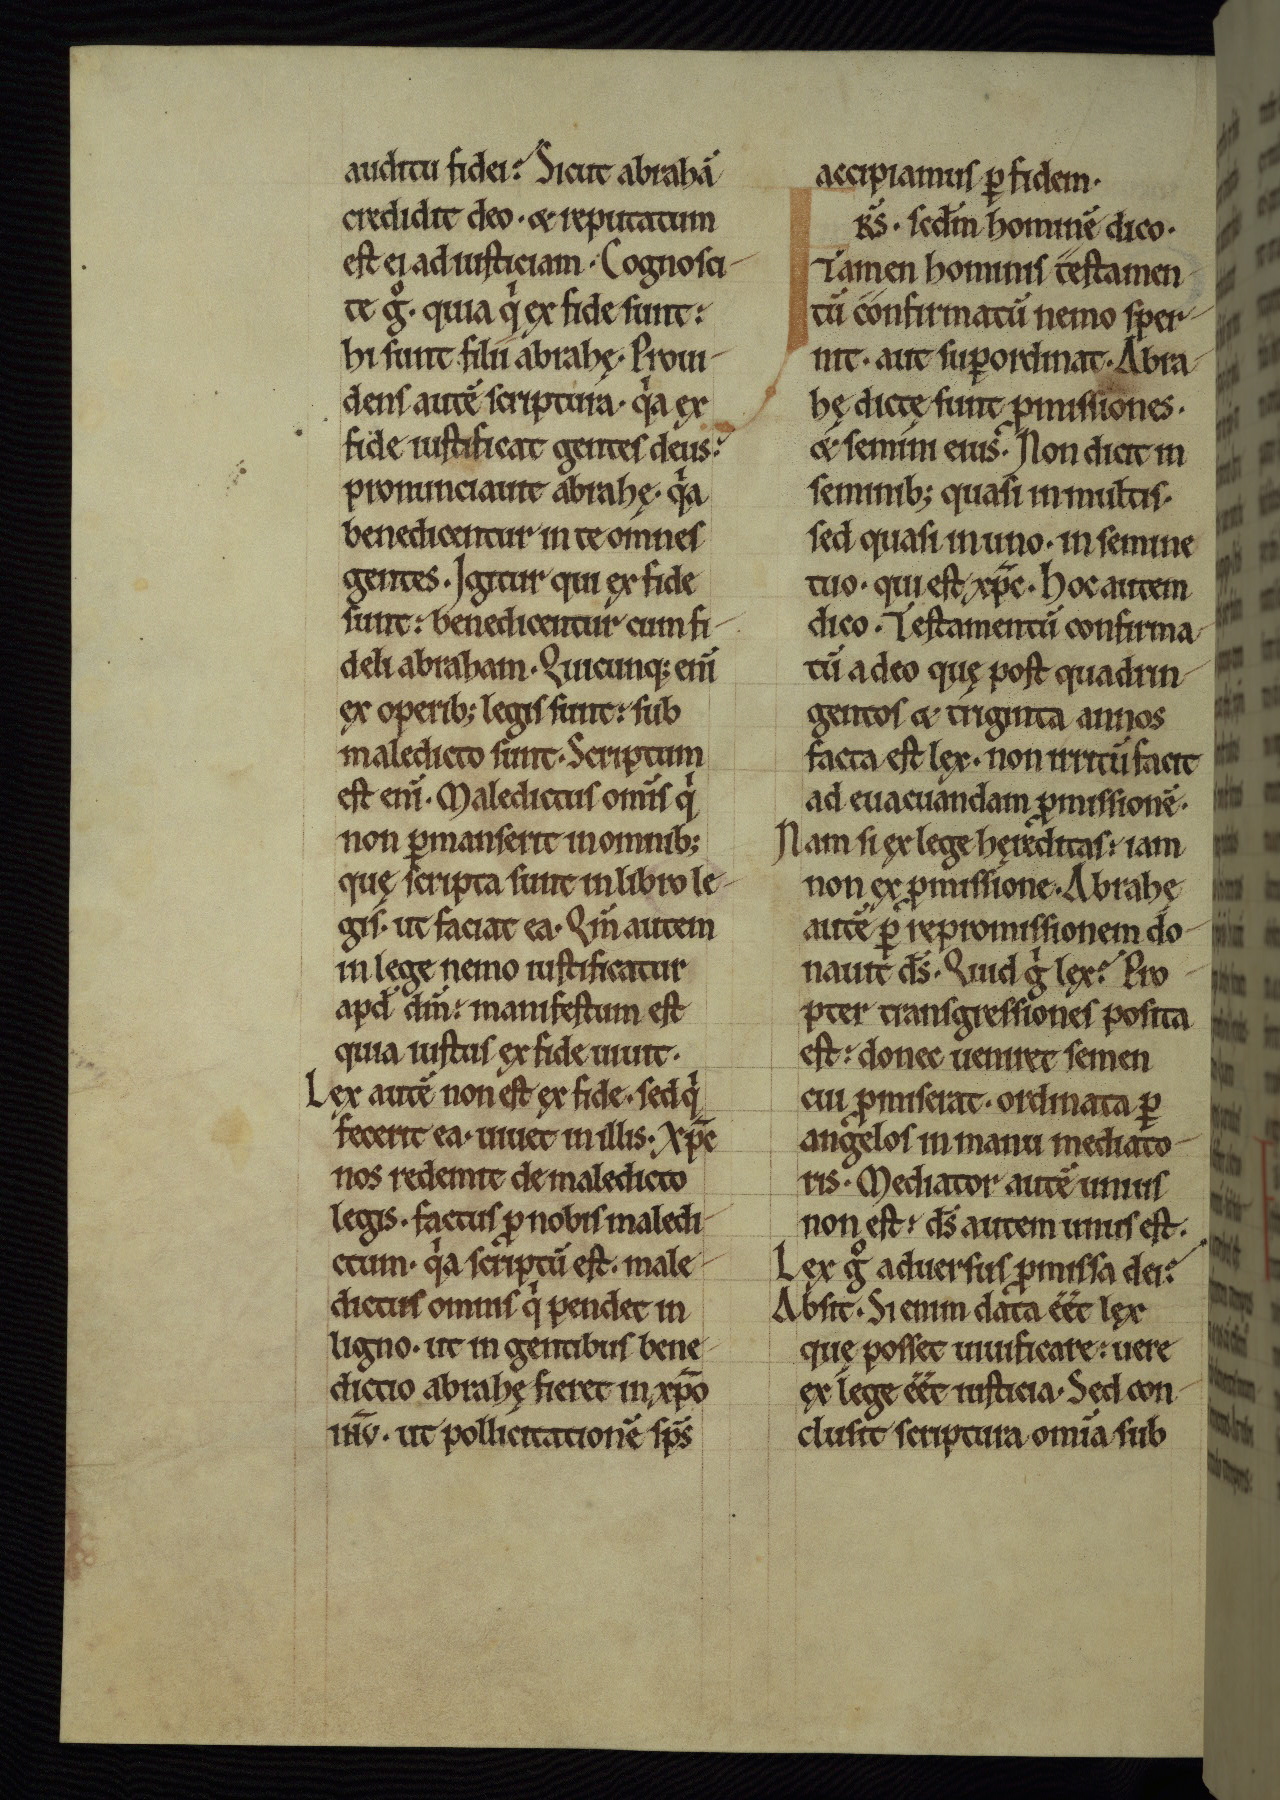 auditu fidei? Sicut abrahā
credidit deo · & reputatum
est ei ad iusticiam · Cognosci-
te g̊ · quia q̇ ex fide sunt:
hi sunt filii abrahę · Proui-
dens autē scriptura · q̇a ex
fide iustificat gentes deus:
pronunciauit abrahę · q̇a
benedicentur in te omnes
gentes · Igitur qui ex fide
sunt: benedicentur cum fi-
deli abraham · Quicunq; eni̅
ex operib; legis sunt: sub
maledicto sunt · Scriptum
est eni̅ · Maledictus omi̅s q̇
non ꝑmanserit in omnib;
quę scripta sunt in libro le-
gis · ut faciat ea · Qm̅ autem
in lege nemo iustificatur
apd̅ dm̅: manifestum est
quia iustus ex fide uiuit ·
Lex autē non est ex fide · sed q̇
fecerit ea · uiuet in illis · Xp̅c
nos redemit de maledicto
legis · factus ꝓ nobis maledi-
ctum · q̇a scriptū est · male-
dictus omnis q̇ pendet in
ligno · ut in gentibus bene-
dictio abrahę fieret in xp̅o
ih̅u · ut pollicitationē sp̅s
accipiamus ꝑ fidem ·
Fr̅s · scd̅m hominē dico ·
Tamen hominis testamen-
tū confirmatū nemo sper-
nit · aut suꝑordinat · Abra-
hę dictę sunt ꝓmissiones ·
& semini eius · Non dicit in
seminib; quasi in multis ·
sed quasi in uno · in semine
tuo · qui est xp̅c · Hoc autem
dico · Testamentū confirma-
tū a deo quę post quadrin-
gentos & triginta annos
facta est lex · non irritū facit
ad euacuandam ꝓmissionē ·
Nam si ex lege hereditas: iam
non ex ꝓmissione · Abrahę
autē ꝑ repromissionem do-
nauit ds̅ · Quid g̊ lex? Pro-
pter transgressiones posita
est: donec ueniret semen
cui ꝓmiserat · ordinata ꝑ
angelos in manu mediato-
ris · Mediator autē unius
non est: ds̅ autem unus est ·
Lex g̊ aduersus ꝓmissa dei?
Absit · Si enim data ee̅t lex
quę posset uiuificare: uere
ex lege ee̅t iusticia · Sed con-
clusit scriptura omi̅a sub